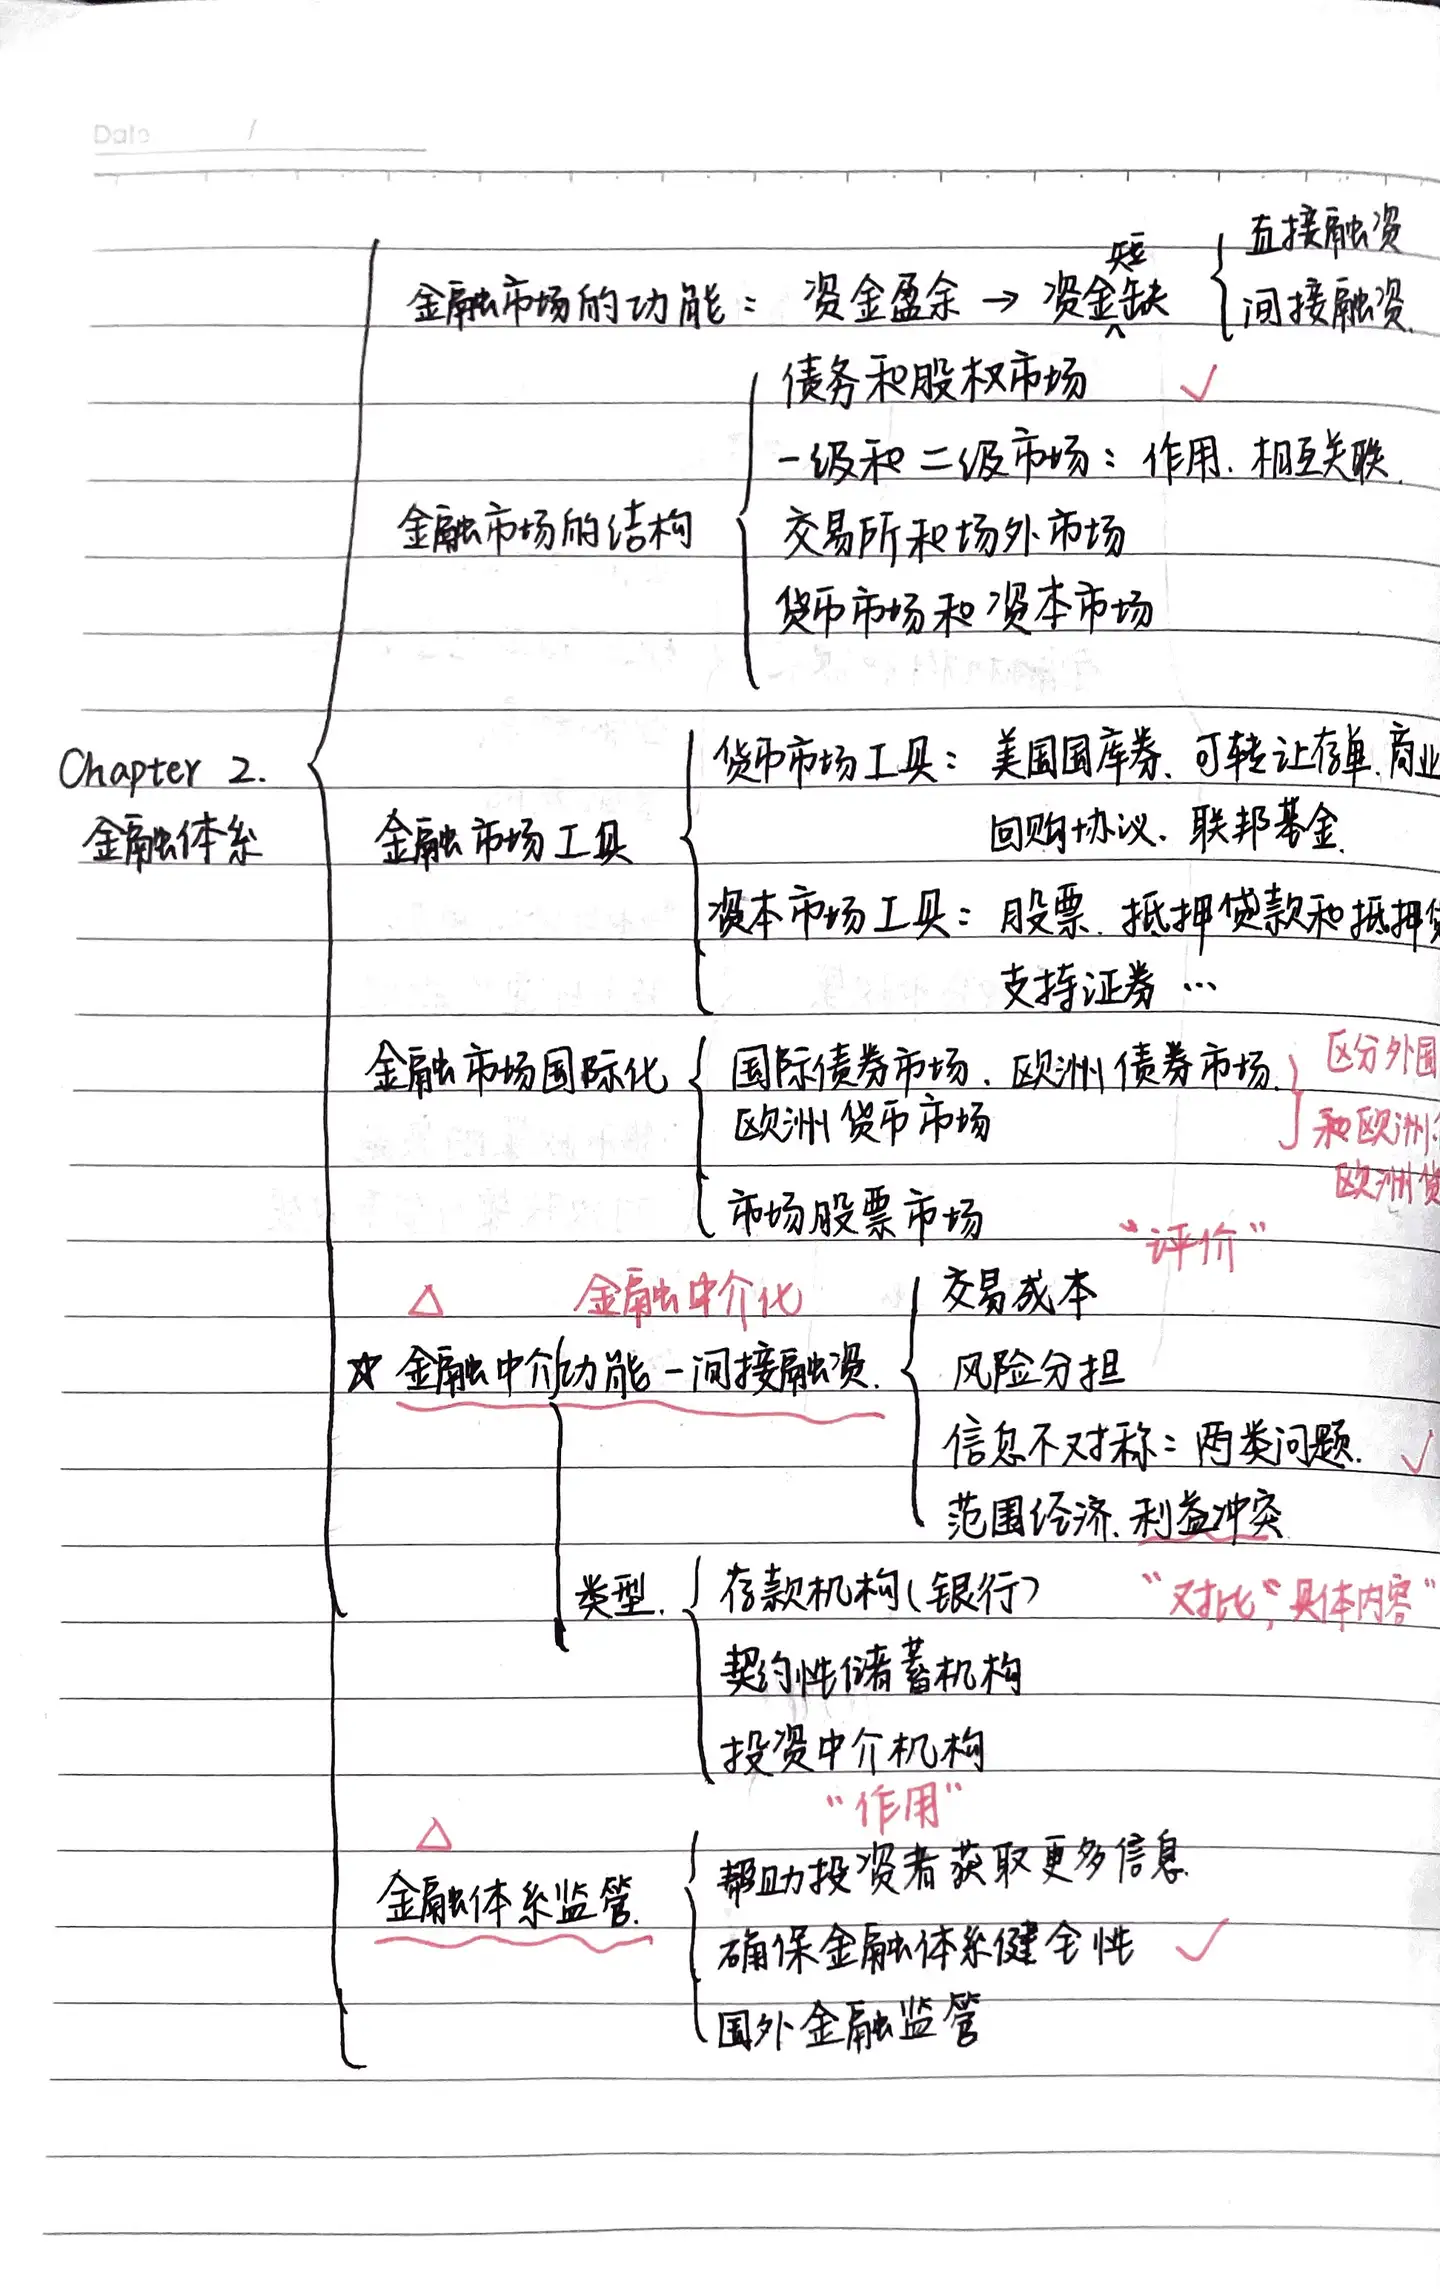 Date /
直接融资
金融市场的功能：资金盈余 → 资金短缺
间接融资.
债务和股权市场 ✓
一级和二级市场：作用. 相互关联.
金融市场的结构
交易所和场外市场
货币市场和资本市场
Chapter 2.
金融体系
货币市场工具：美国国库券、可转让存单、商业
金融市场工具
回购协议、联邦基金.
资本市场工具：股票、抵押贷款和抵押贷
支持证券 …
金融市场国际化
国际债券市场、欧洲债券市场.
欧洲货币市场
区分外国
和欧洲
欧洲货
市场股票市场
"评价"
△ 金融中介化
交易成本
☆ 金融中介功能－间接融资.
风险分担
信息不对称：两类问题. ✓
范围经济、利益冲突
类型.
存款机构(银行)
"对比"，具体内容"
契约性储蓄机构
投资中介机构
"作用"
△
金融体系监管.
帮助投资者获取更多信息.
确保金融体系健全性 ✓
国外金融监管